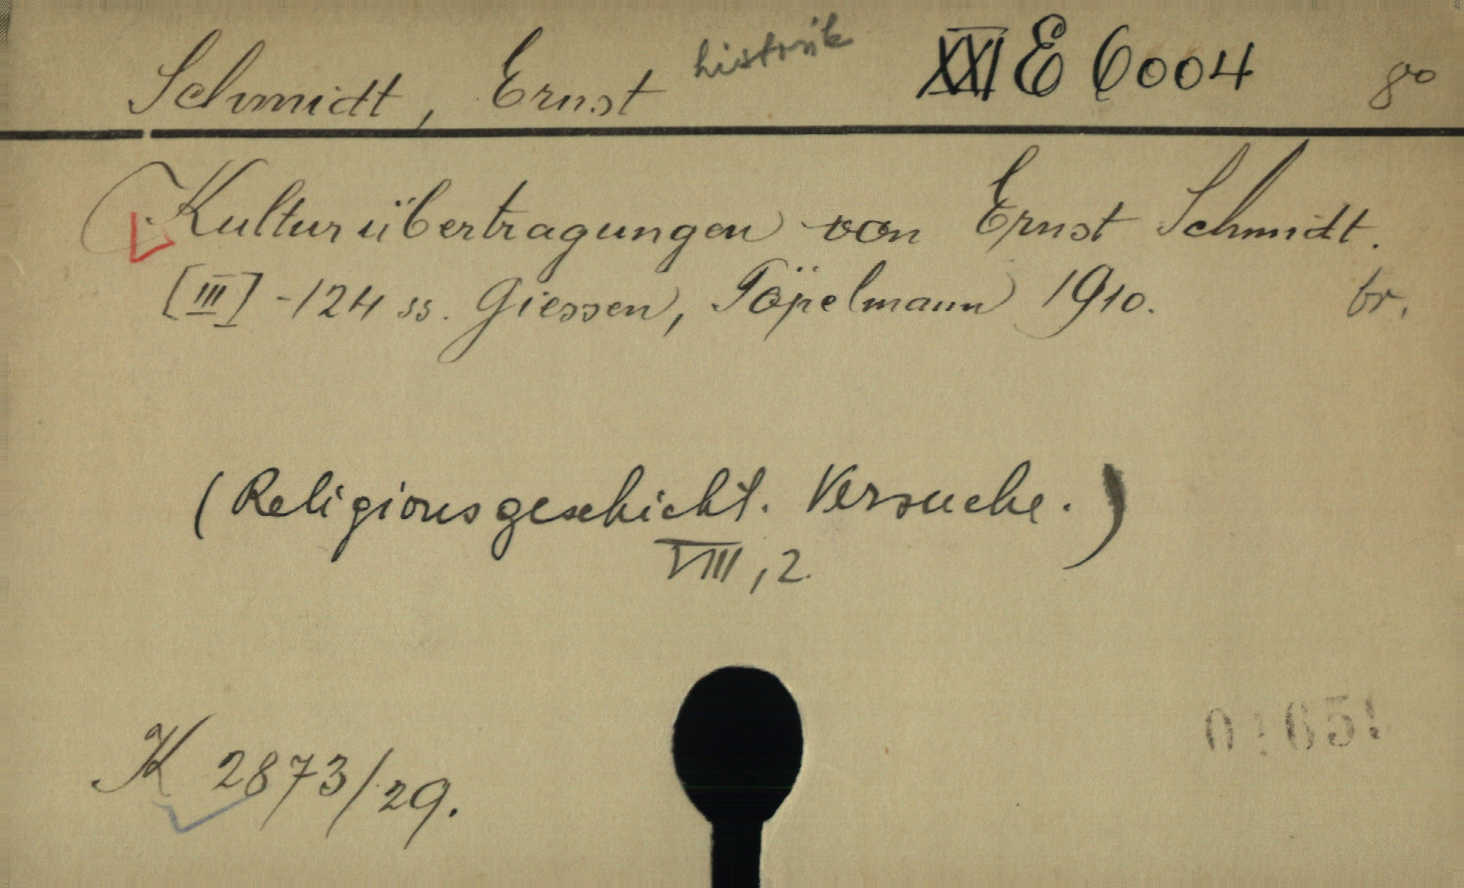 Schmidt, Ernst historik XXI E 6004 8°
Kulturübertragungen von Ernst Schmidt.
[III] -124 ss. Giessen, Töpelmann 1910. br.
(Religionsgeschichtl. Versuche.)
VIII, 2.
K 2873/29.